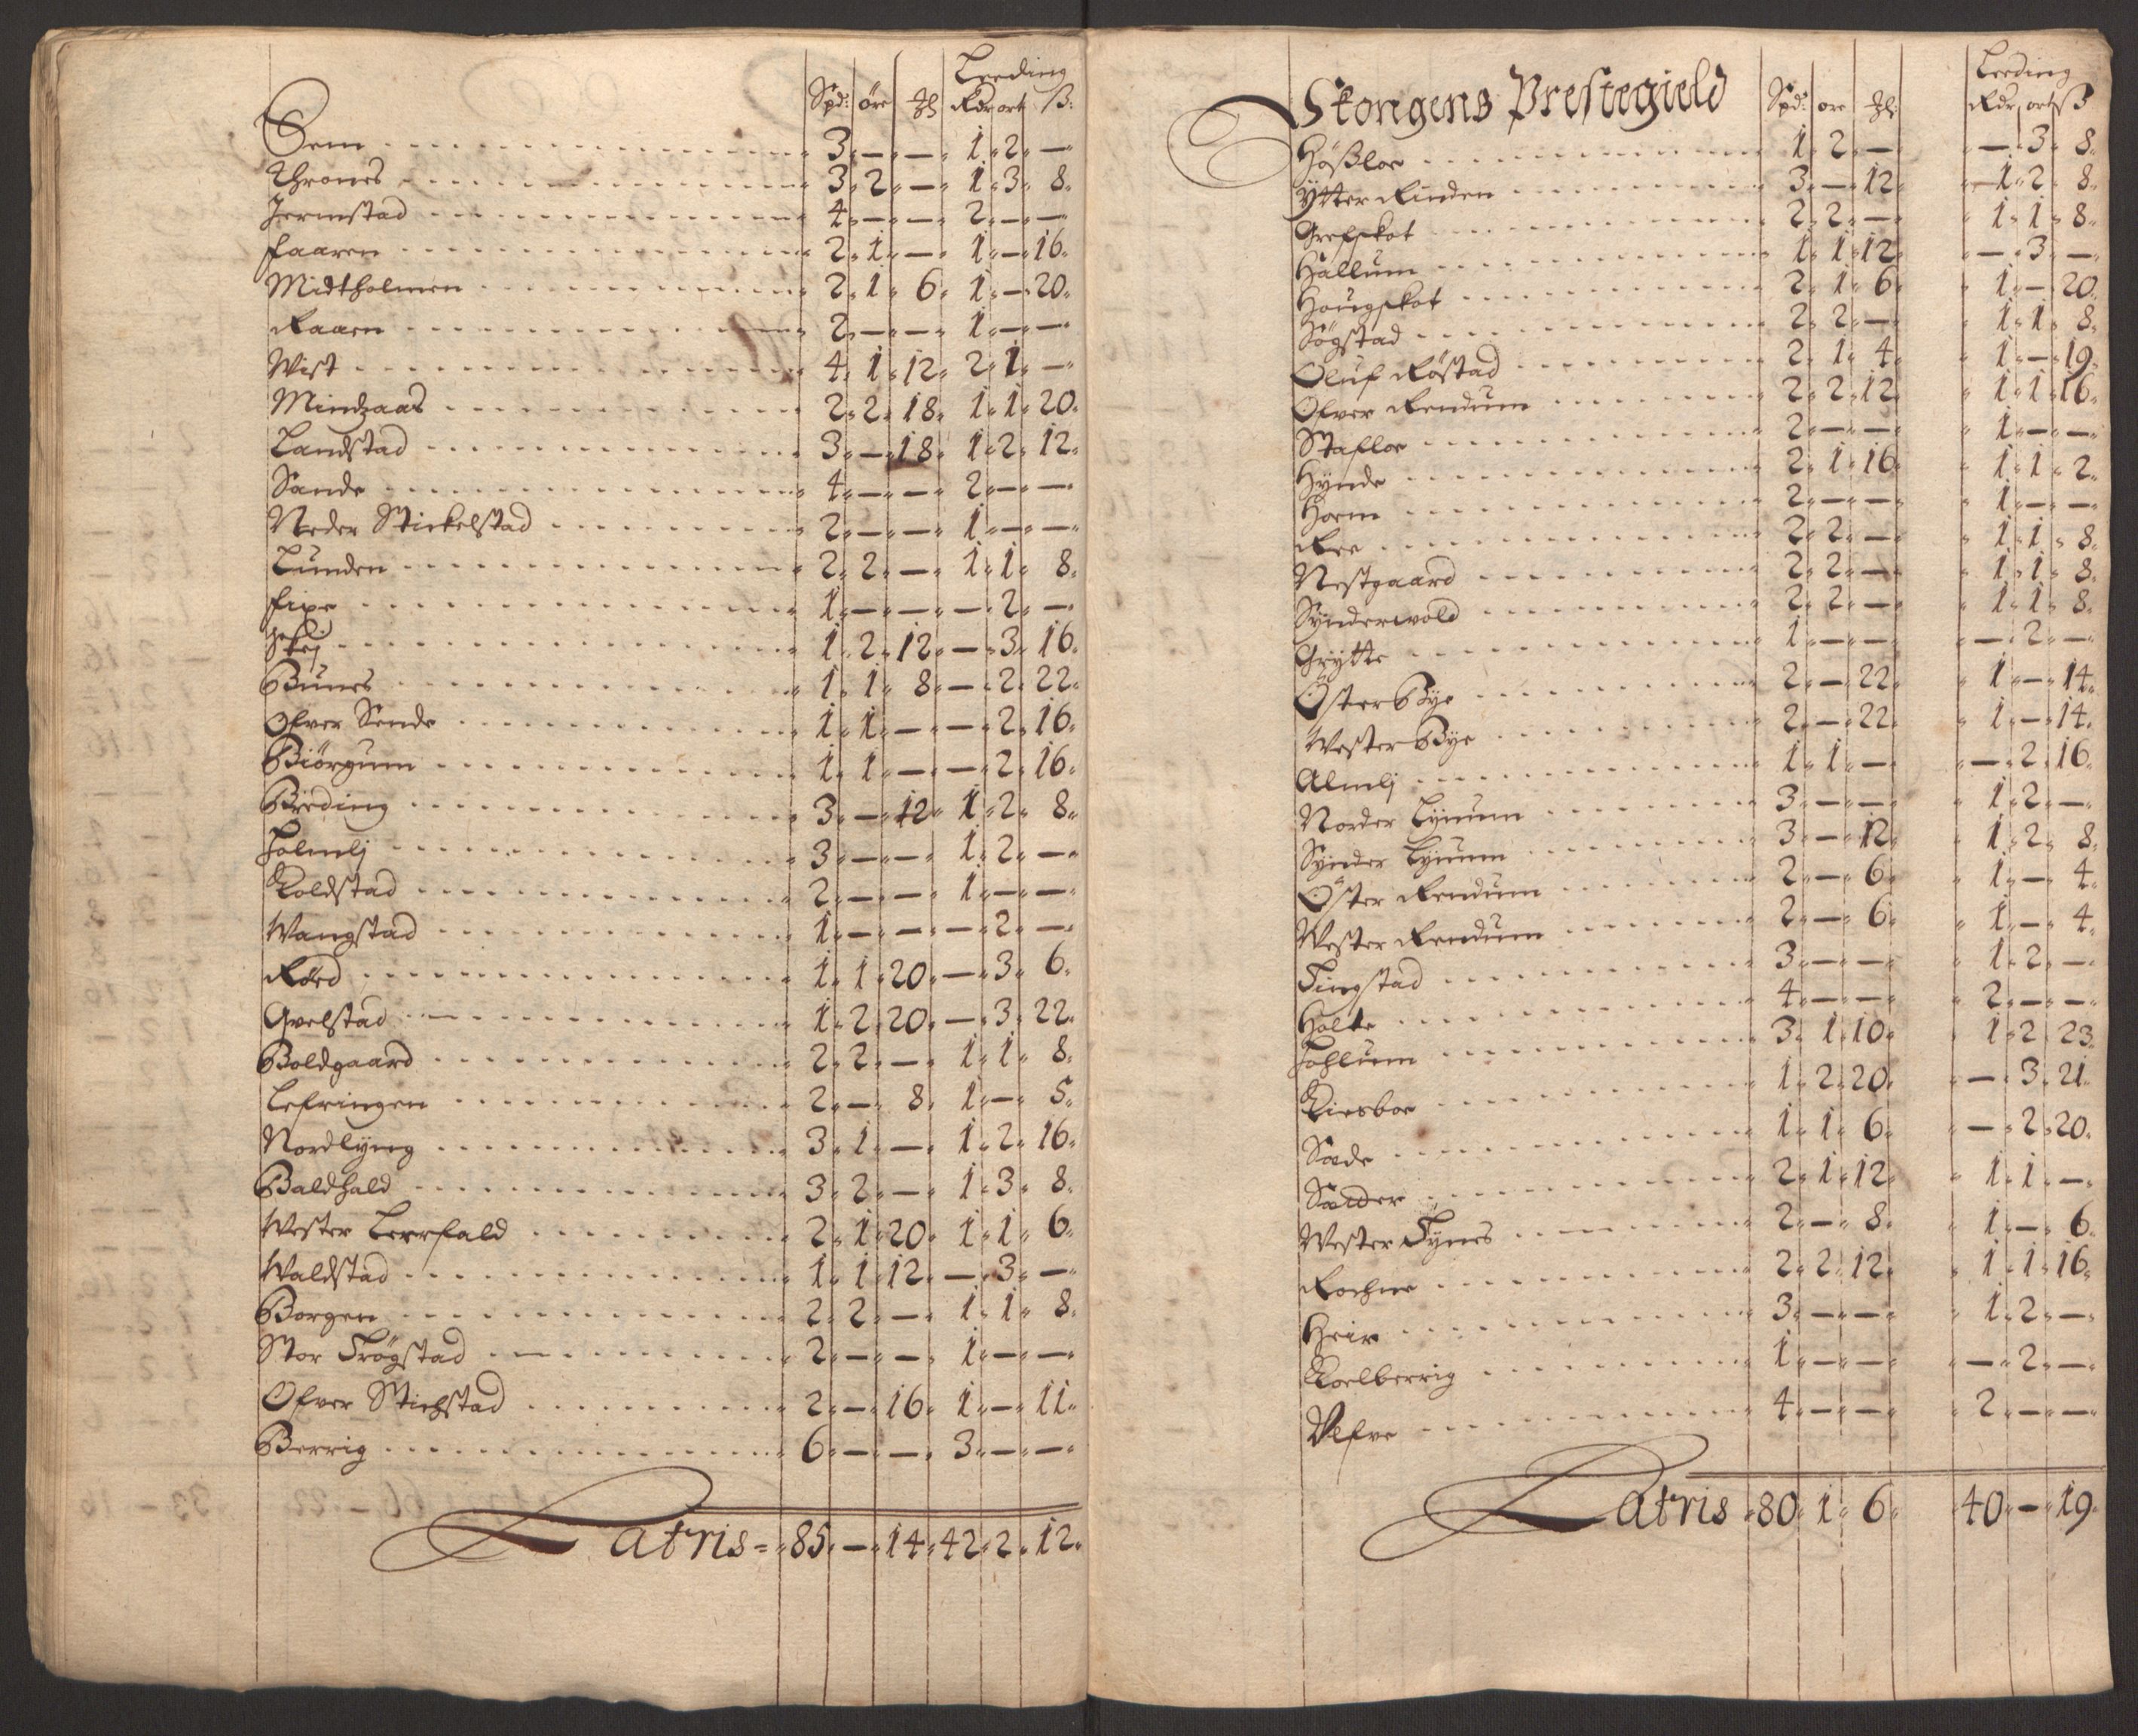 Leeding
Spd: öre ℔ Rdr ort ß:
Sem 3 — — 1 2 —
Thrones 3 2 — 1 3 8
Jermstad 4 — — 2 — —
Faaren 2 1 — 1 — 16
Midtholmen 2 1 6 1 — 20
Raaen 2 — — 1 — —
Wist 4 1 12 2 1 —
Mindzaas 2 2 18 1 1 20
Landstad 3 — 18 1 2 12
Sande 4 — — 2 — —
Neder Stickelstad 2 — — 1 — —
Lunden 2 2 — 1 1 8
1 — — — 2 —
Skej 1 2 12 — 3 16
Bunes 1 1 8 — 2 22
Ofver Sende 1 1 — — 2 16
Biörgum 1 1 — — 2 16
Breding 3 — 12 1 2 8
Holmlj 3 — — 1 2 —
Koldstad 2 — — 1 — —
Wangstad 1 — — — 2 —
Röed 1 1 20 — 3 6
Qvelstad 1 2 20 — 3 22
Boldgaard 2 2 — 1 1 8
Lefringen 2 — 8 1 — 5
Nordlÿng 3 1 — 1 2 16
Baldhald 3 2 — 1 3 8
Wester Leerfald 2 1 20 1 1 6
Waldstad 1 1 12 — 3 —
Borgen 2 2 — 1 1 8
Stor Trögstad 2 — — 1 — —
Ofver Stichstad 2 — 16 1 — 11
Berrig 6 — — 3 — —
Latris 85 — 14 42 2 12
Skongens Prestegield
Leeding
Spd: ore ℔ Rdr ort ß
Hößloe 1 2 — — 3 8
Ytter Rinden 3 — 12 1 2 8
Grefskot 2 2 — 1 1 8
Hallum 1 1 12 — 3 —
Hougskot 2 1 6 1 — 20
Sögstad 2 2 — 1 1 8
Oluf Röstad 2 1 4 1 — 19
Ofver Rendum 2 2 12 1 1 16
Stafloe 2 — — 1 — —
Hÿnde 2 1 16 1 1 2
Horm 2 — — 1 — —
Ree 2 2 — 1 1 8
Nestgaard 2 2 — 1 1 8
Sÿnderwold 2 2 — 1 1 8
Grÿtte 1 — — — 2 —
Öster Bye 2 — 22 1 — 14
Wester Bye 2 — 22 1 — 14
Almlj 1 1 — — 2 16
Norder Lÿnum 3 — — 1 2 —
Sÿnder Lÿnum 3 — 12 1 2 8
Öster Rendum 2 — 6 1 — 4
Wester Rendum 2 — 6 1 — 4
Tingstad 3 — — 1 2 —
Holte 4 — — 2 — —
Fohlum 3 1 10 1 2 23
Kiesboe 1 2 20 — 3 21
Sæde 1 1 6 — 2 20
Sæder 2 1 12 1 1 —
Wester Tÿnes 2 — 8 1 — 6
Rochne 2 2 12 1 1 16
Heir 3 — — 1 2 —
Koelberrig 1 — — — 2 —
Ulfve 4 — — 2 — —
Latris 80 1 6 40 — 19